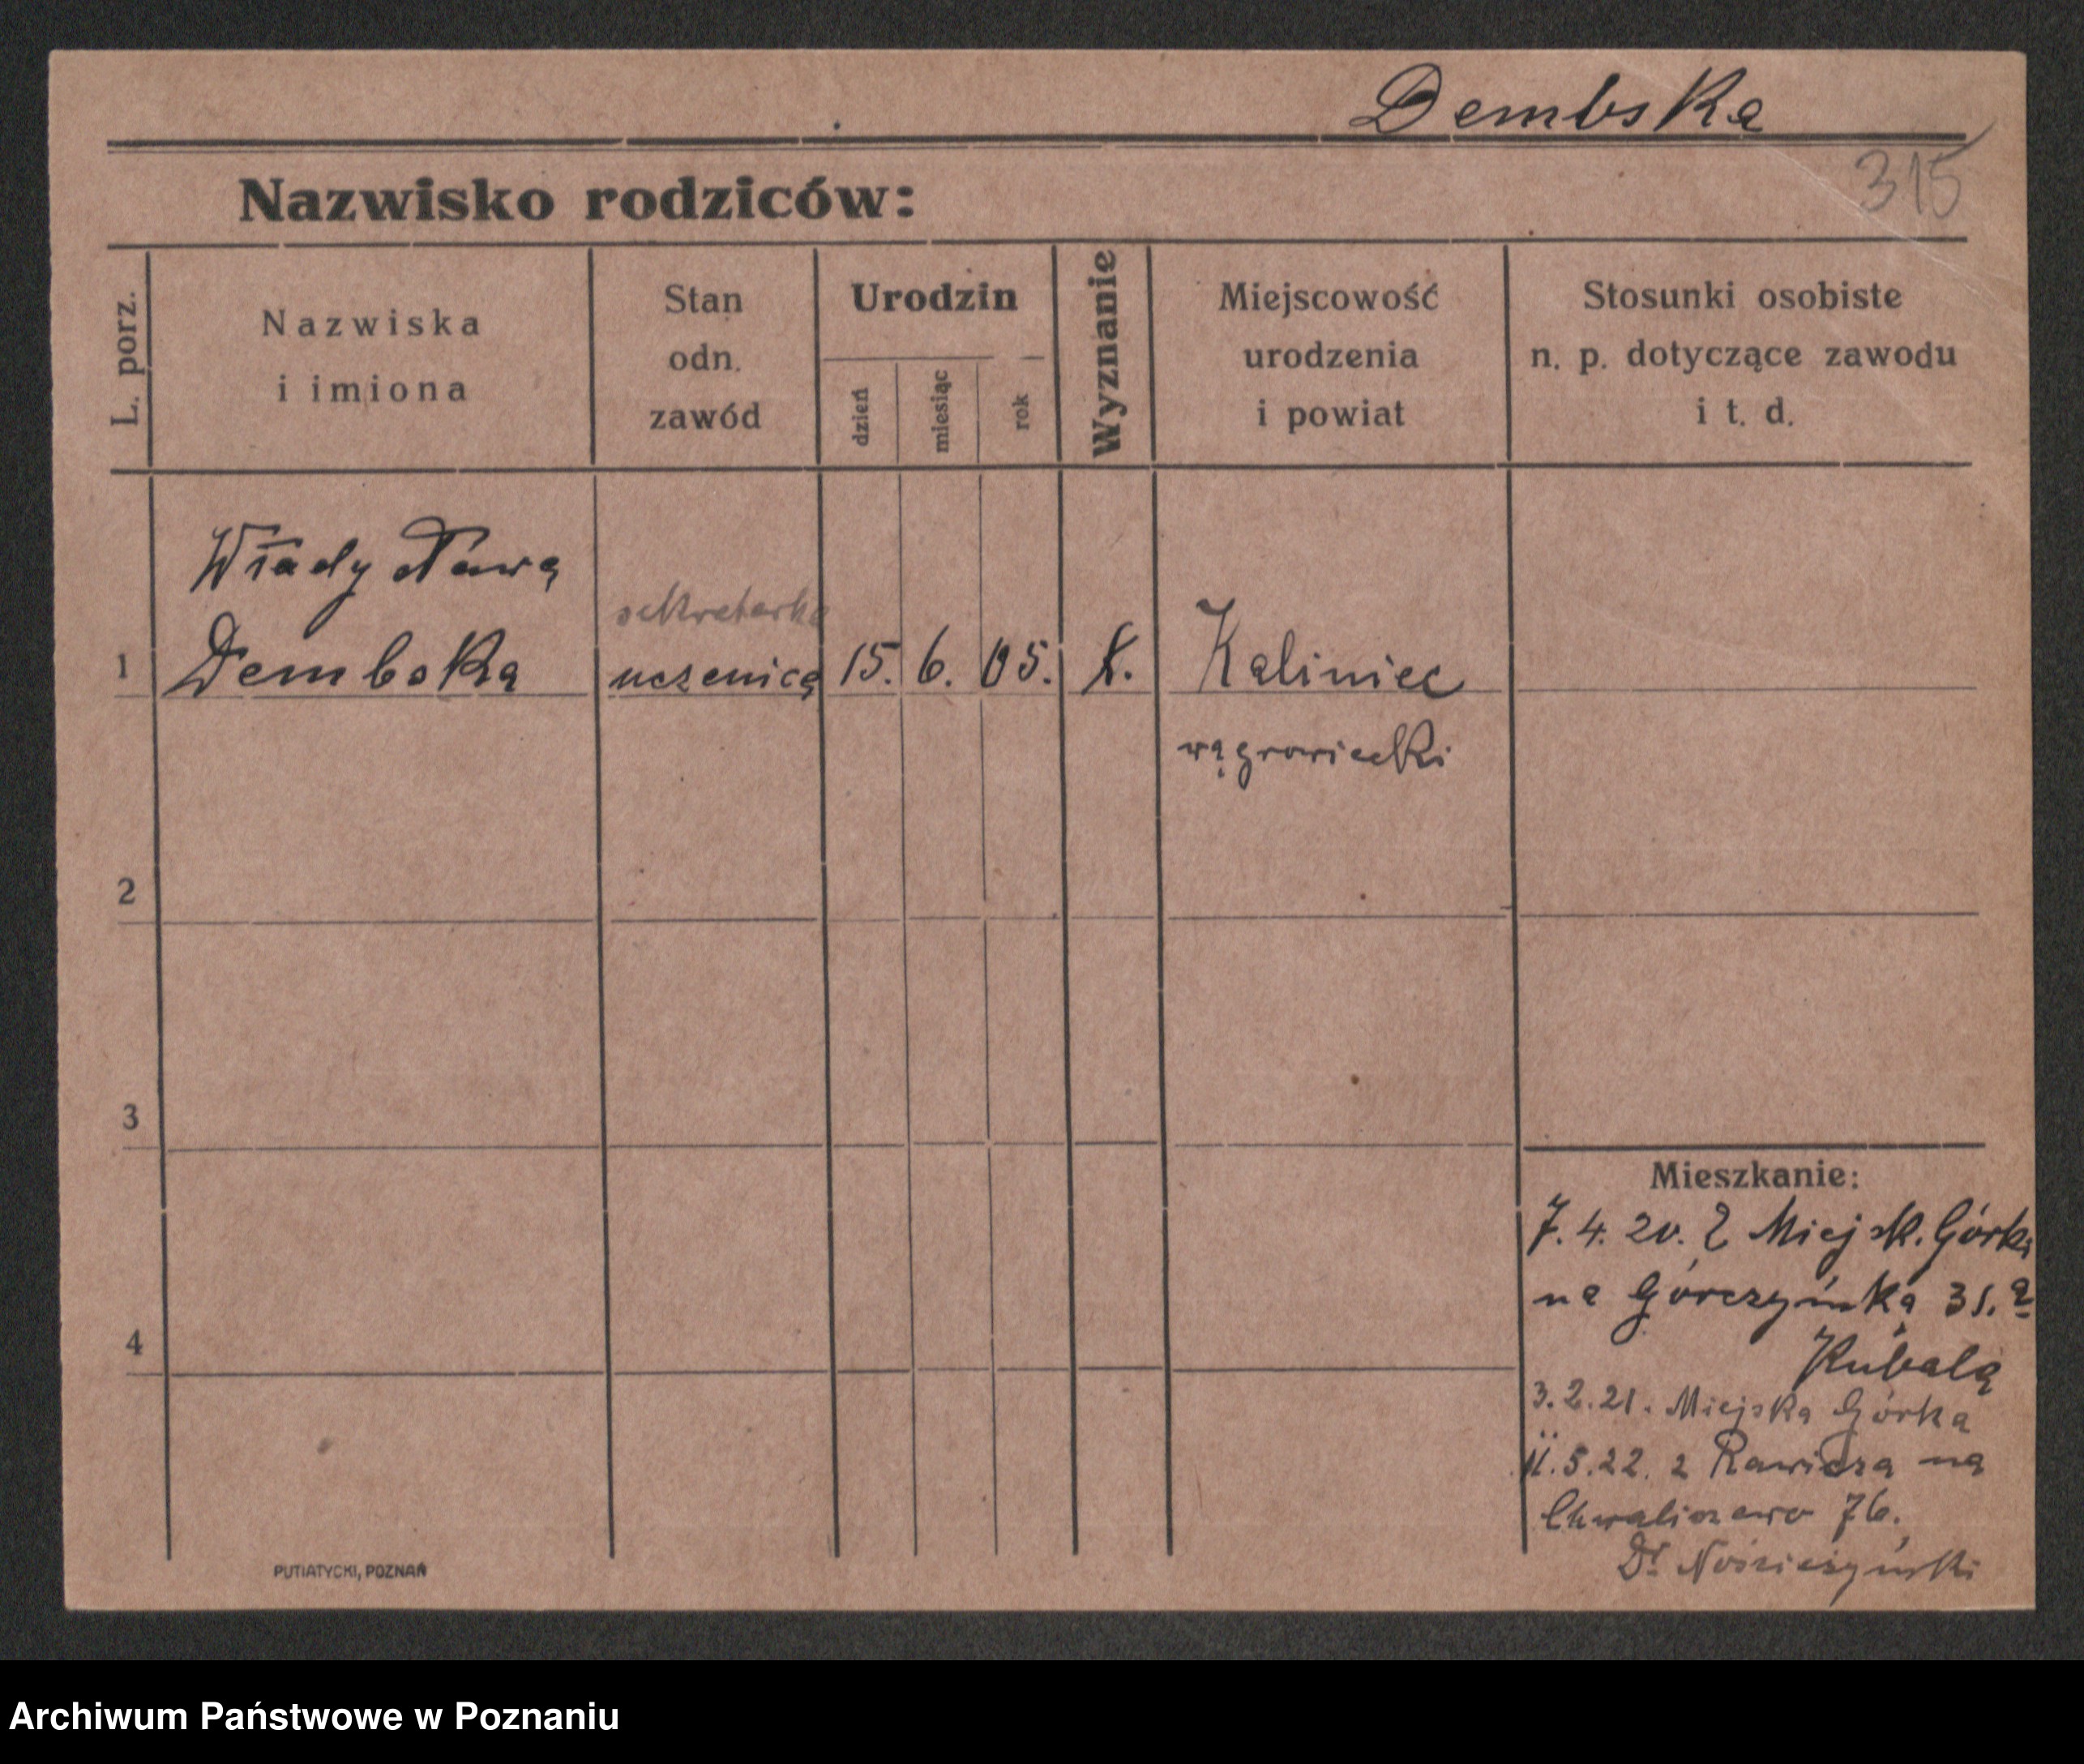 Dembska
315
Nazwisko rodziców:
L. porz.
Nazwiska
i imiona
Stan
odn.
zawód
Urodzin
dzień
miesiąc
rok
Wyznanie
Miejscowość
urodzenia
i powiat
Stosunki osobiste
n. p. dotyczące zawodu
i t. d.
Władysława
sekretarka
1 Dembska uczenica 15. 6. 05. k. Kaliniec
wągrowiecki
2
3
Mieszkanie:
7.4.20. Z Miejsk. Górka
na Górczyńka 31.a
4
Kubala
3.2.21. Miejska Górka
11.5.22. z Rawicza na
Chwaliszewo 76.
Dr
PUTIATYCKI, POZNAŃ
Archiwum Państwowe w Poznaniu